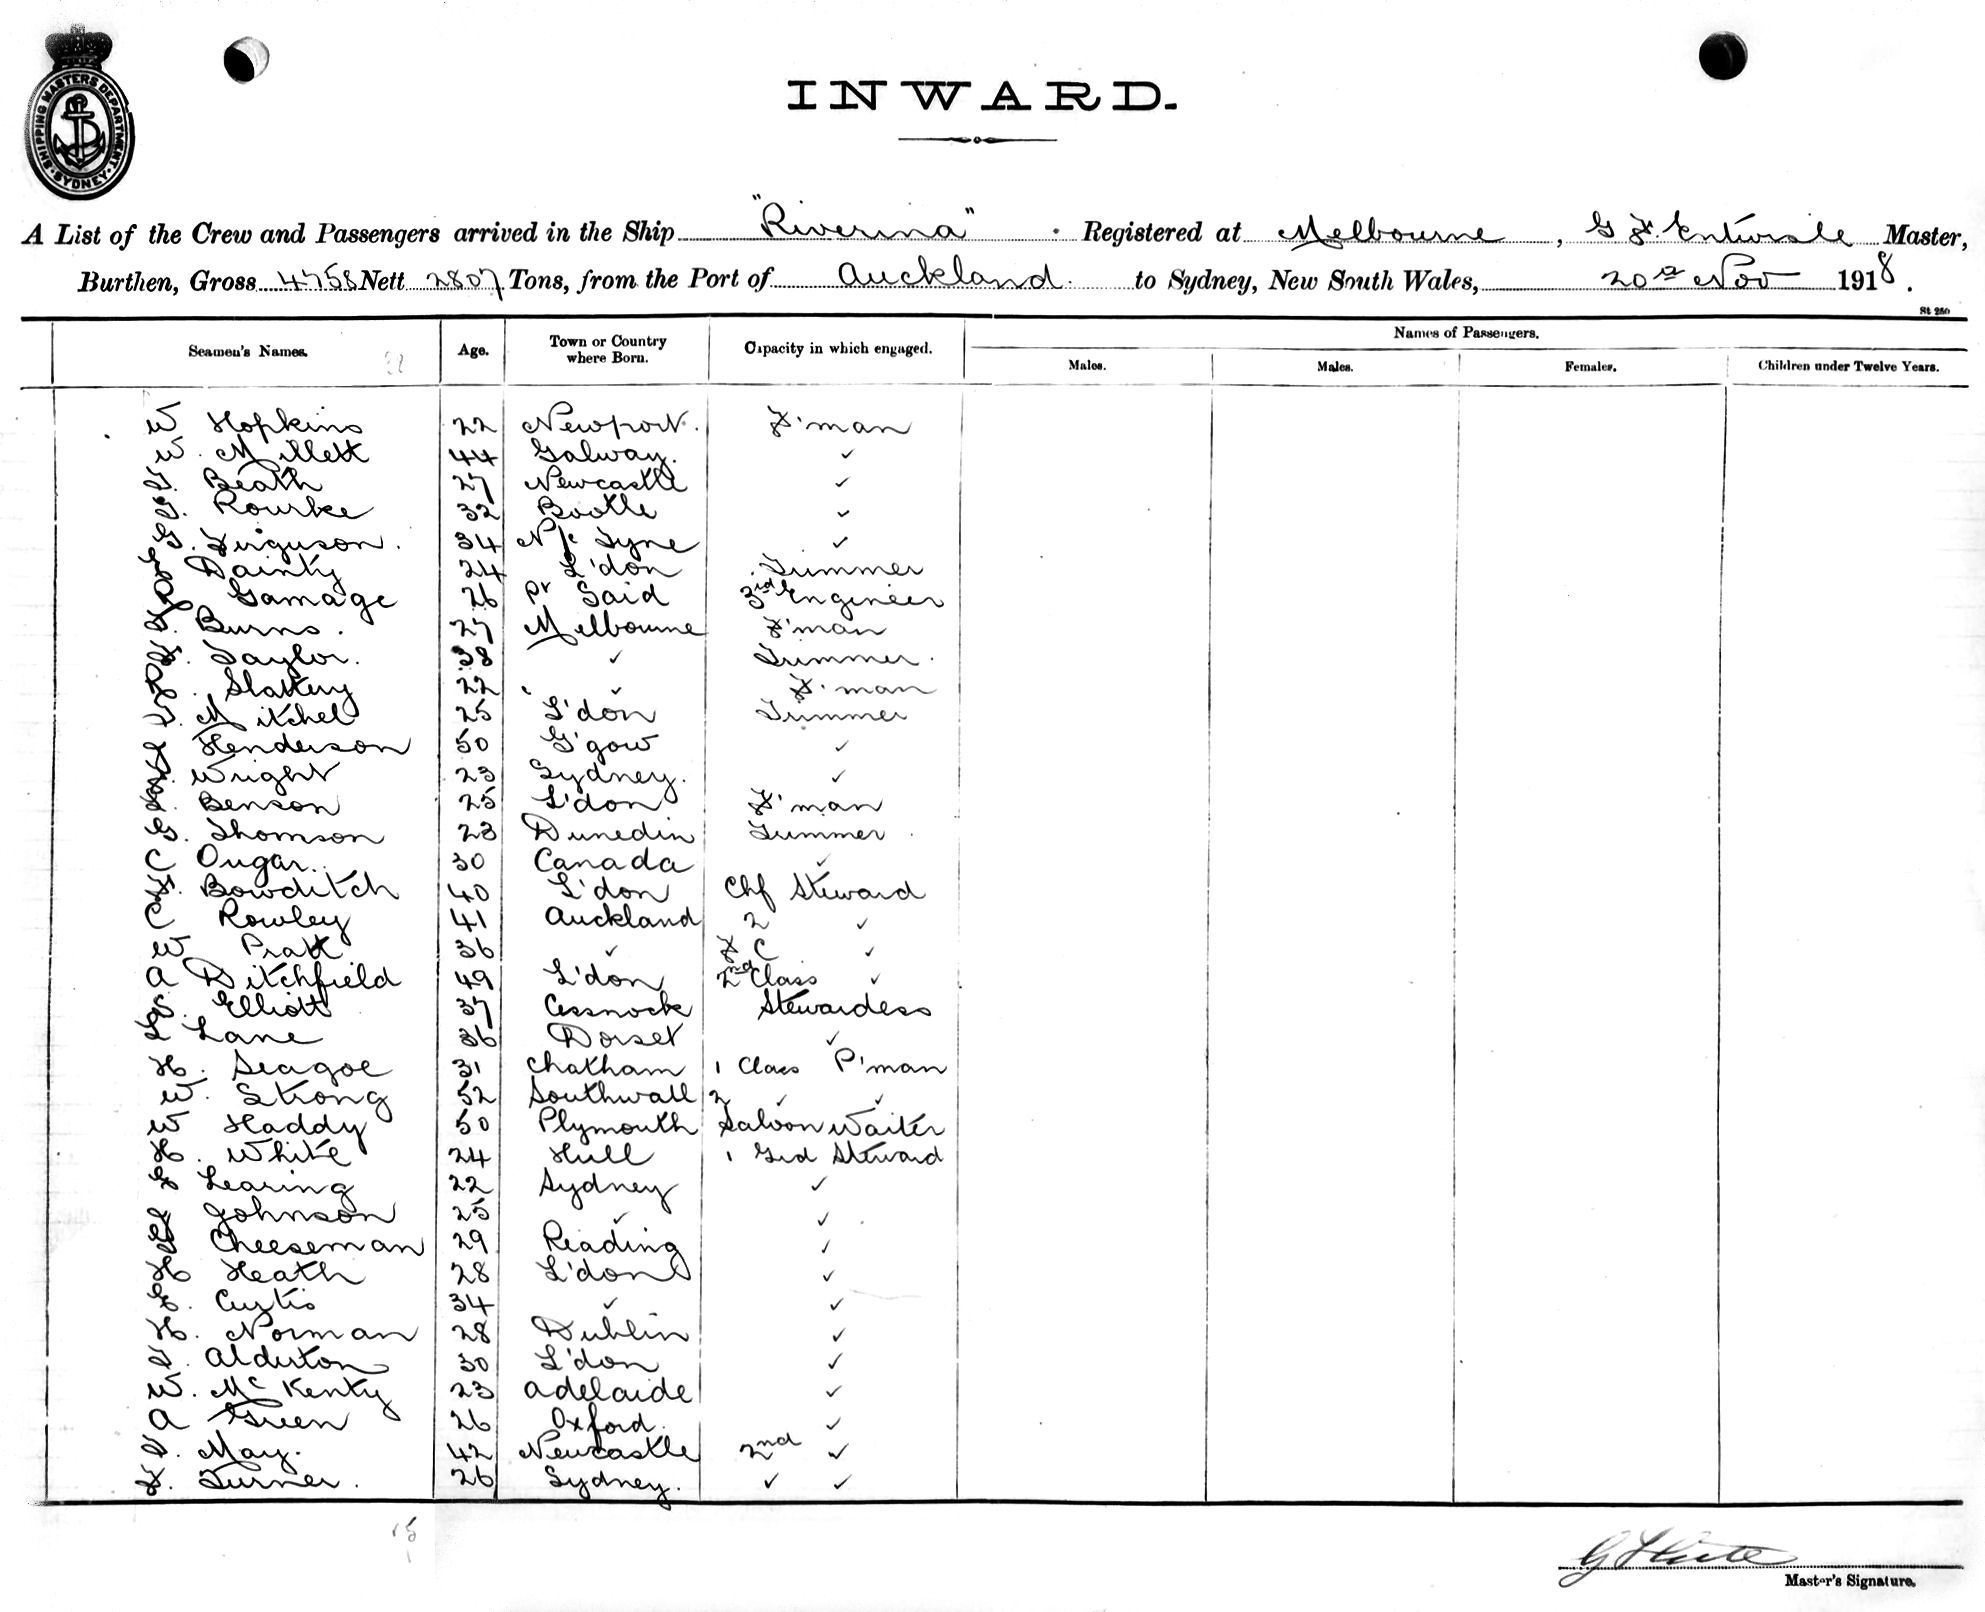 SHIPPING MASTERS DEPARTMENT SYDNEY
INWARD.
A List of the Crew and Passengers arrived in the Ship "Riverina" Registered at Melbourne, G F. Entwisle Master,
Burthen, Gross 4758 Nett 2807 Tons, from the Port of Auckland to Sydney, New South Wales, 20th Nov 1918.
St 250
Seamen's Names. Age. Town or Country where Born. Capacity in which engaged. Names of Passengers.
Males. Males. Females. Children under Twelve Years.
W Hopkins 22 Newport. F'man
W. Millett 44 Galway. ✓
T. Beath 27 Newcastle ✓
Rourke 32 Bootle ✓
G. Ferguson. 34 N/c Tyne ✓
Dainty 24 L'don Trimmer
Gamage 26 Pt Said 3rd Engineer
Burns. 27 Melbourne F'man
Taylor. 38 ✓ Trimmer.
Slattery 22 ✓ F'man
Mitchel 25 L'don Trimmer
Henderson 50 G'gow ✓
Wright 23 Sydney. ✓
Benson 25 L'don F'man
G. Thomson 23 Dunedin Trimmer
C Ougar. 30 Canada ✓
F. Bowditch 40 L'don Chf Steward
C Rowley 41 Auckland 2 ✓
W Pratt 36 ✓ F C ✓
A Ditchfield 49 L'don 2nd Class ✓
Elliott 37 Cessnock Stewardess
L Lane 36 Dorset ✓
H. Seagoe 31 Chatham 1 Class P'man
W. Strong 52 Southwall 2 ✓ ✓
W Haddy 50 Plymouth Saloon Waiter
H. White 24 Hull 1 Grd Steward
G Learing 22 Sydney ✓
J Johnson 25 ✓ ✓
Cheeseman 29 Reading ✓
H Heath 28 L'don ✓
Curtis 34 ✓ ✓
H. Norman 28 Dublin ✓
T. Alderton 30 L'don ✓
W. McKenty 23 Adelaide ✓
A Green 26 Oxford. ✓
T. May. 42 Newcastle 2nd ✓
F. Turner. 26 Sydney. ✓ ✓
Master's Signature.